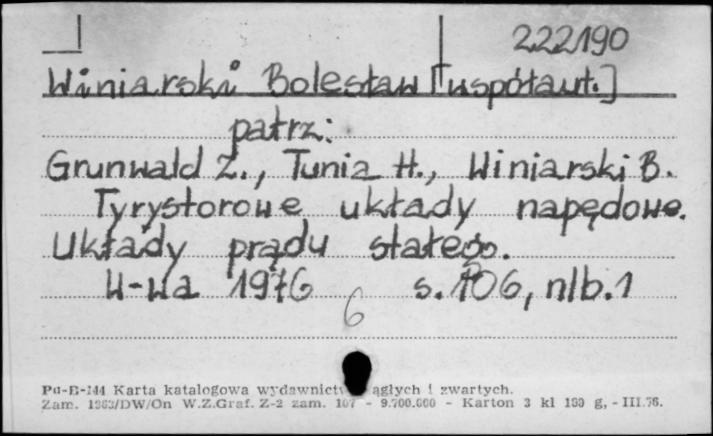 222190
Winiarski Bolesław [współaut.]
patrz:
Grunwald Z., Tunia H., Winiarski B.
Tyrystorowe układy napędowe.
Układy prądu stałego.
W-wa 1976 s. 106, nlb. 1
6
Pu-B-144 Karta katalogowa wydawnictw ciągłych i zwartych.
Zam. 1363/DW/On W.Z.Graf. Z-2 zam. 107 - 9.700.000 - Karton 3 kl 180 g, - III.76.